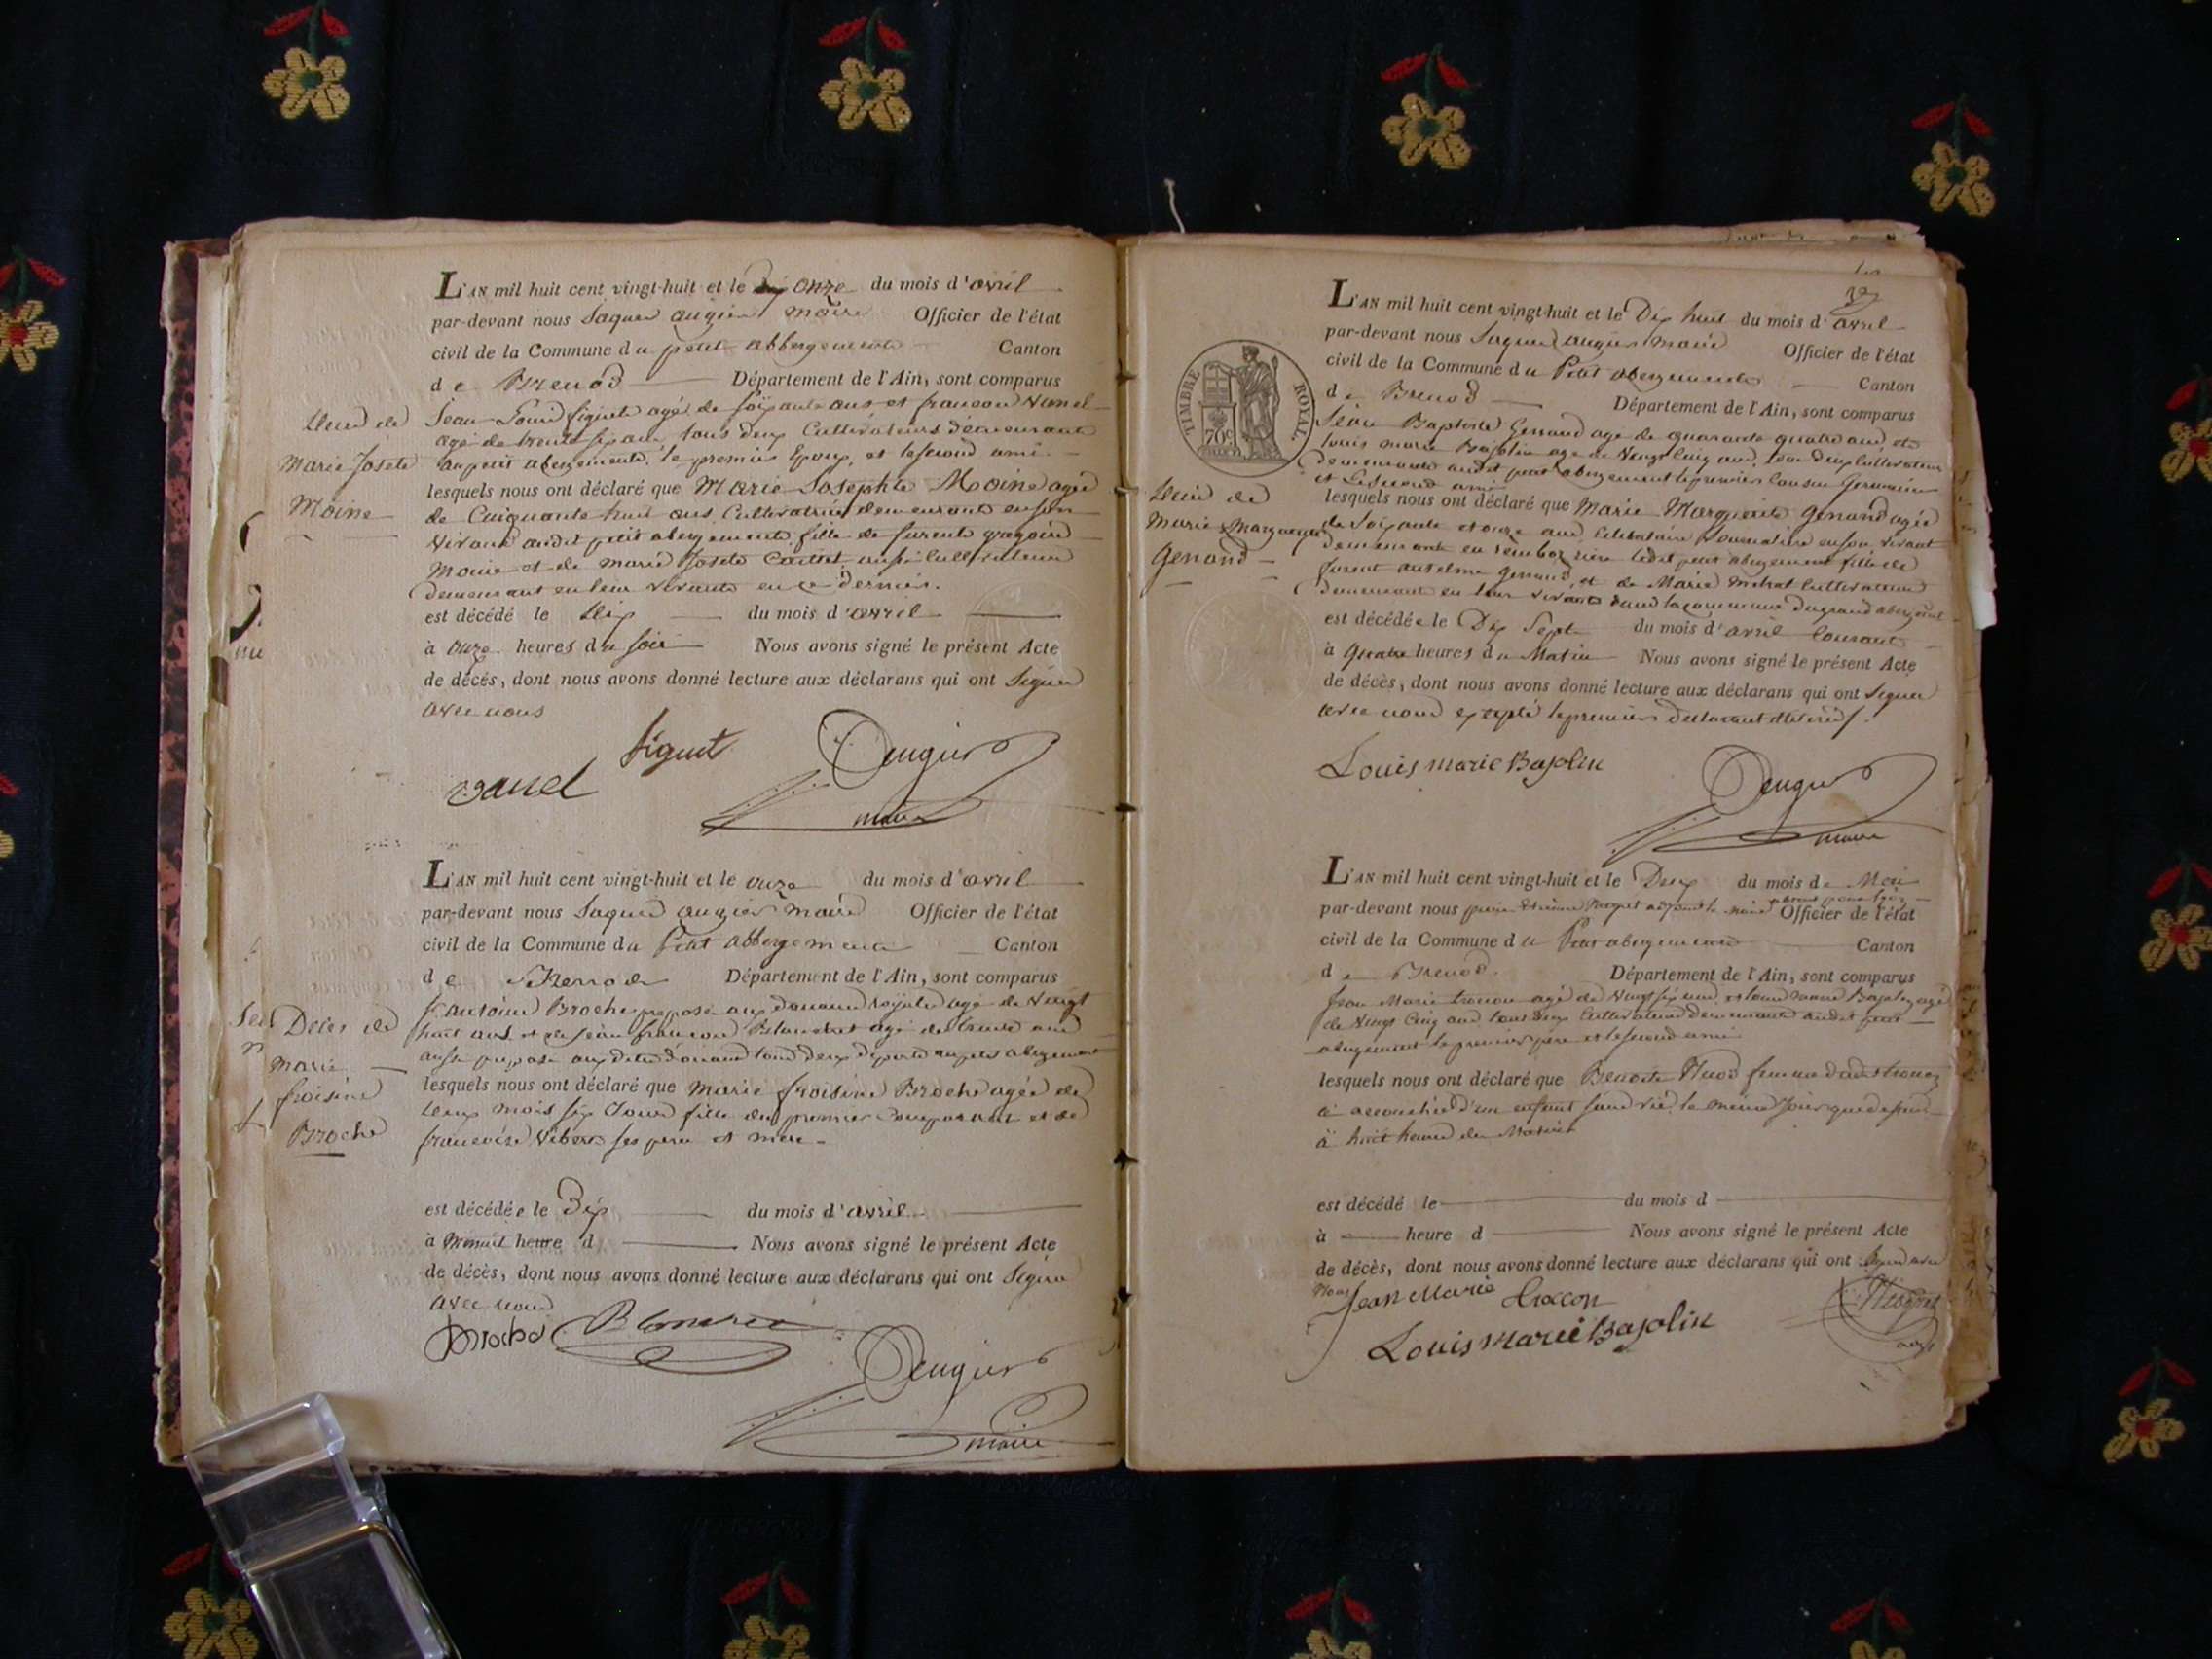 L'AN mil huit cent vingt-huit et le onze du mois d'avril
par-devant nous Jaques augier maire Officier de l'état
civil de la Commune du petit abbergement Canton
de Brenod Département de l'Ain, sont comparus
Jean Louis figuet agé de soixante ans et francois Vanel
agé de trente six ans tous deux Cultivateurs demeurant
au petit abergement le premier Epoux et le second ami
lesquels nous ont déclaré que Marie Josephte Moine agée
de Cinquante huit ans Cultivatrice demeurant en son
vivant audit petit abergement fille de furent gregoire
Moine et de marie Josete aussi Cultivateurs
demeurant en leur vivant en ce dernier.
est décédé le dix du mois d'avril
à onze heures du soir Nous avons signé le présent Acte
de décés, dont nous avons donné lecture aux déclarans qui ont signés
avec nous
figuet
Augier
vanel
maire
Marie Josete
Moine
L'AN mil huit cent vingt-huit et le onze du mois d'avril
par-devant nous Jaques augier maire Officier de l'état
civil de la Commune du Petit abbergement Canton
de Brenod Département de l'Ain, sont comparus
antoine Broche preposé aux douanes royales agé de vingt
huit ans et francois Blanchet agé de trente ans
aussi preposé aux dites douanes tous deux au petit abergement
lesquels nous ont déclaré que marie froisine Broche agée de
deux mois six Jours fille du premier comparant et de
francoise Vibert ses pere et mere
est décédée le Dix du mois d'avril
à Minuit heure d Nous avons signé le présent Acte
de décès, dont nous avons donné lecture aux déclarans qui ont signé
avec nous
Broche
Augier
maire
Deces de
marie
froisine
Broche
L'AN mil huit cent vingt-huit et le Dix huit du mois d'avril
par-devant nous Jaques augier maire Officier de l'état
civil de la Commune du Petit abergement Canton
de Brenod Département de l'Ain, sont comparus
Jean Baptiste Genand agé de quarante quatre ans et
louis marie Bajolin agé de vingt cinq ans, tous deux Cultivateurs
demeurants audit petit abergement le premier Cousin Germain
et le second ami
lesquels nous ont déclaré que Marie Marguerite genand agée
de Soixante et onze ans Celibataire Journaliere en son vivant
demeurante en ledit petit abergement fille de
furent anselme genand et de Marie Cultivateurs
demeurant en leur vivants dans la commune du grand abergement
est décédée le Dix Sept du mois d'avril Courant
à quatre heures du Matin Nous avons signé le présent Acte
de décès, dont nous avons donné lecture aux déclarans qui ont signer
avec nous excepté le premier declarant
Louis marie Bajolin
Augier
maire
TIMBRE ROYAL
70c
Marie Marguerite
Genand
L'AN mil huit cent vingt-huit et le Deux du mois de Mai
par-devant nous adjoint Officier de l'état
civil de la Commune du Petit abergement Canton
de Brenod. Département de l'Ain, sont comparus
Jean Marie troccon agé de vingt six ans et louis marie Bajolin agé
de vingt Cinq ans tous deux Cultivateurs demeurants audit petit
abergement le premier pere et le second ami
lesquels nous ont déclaré que Benoite femme dudit troccon
a accouchée d'un enfant sans vie le meme Jour que dessus
à huit heures du Matin
est décédé le du mois d
à heure d Nous avons signé le présent Acte
de décès, dont nous avons donné lecture aux déclarans qui ont signé avec
Nous
Jean Marie troccon
Louis Marie Bajolin